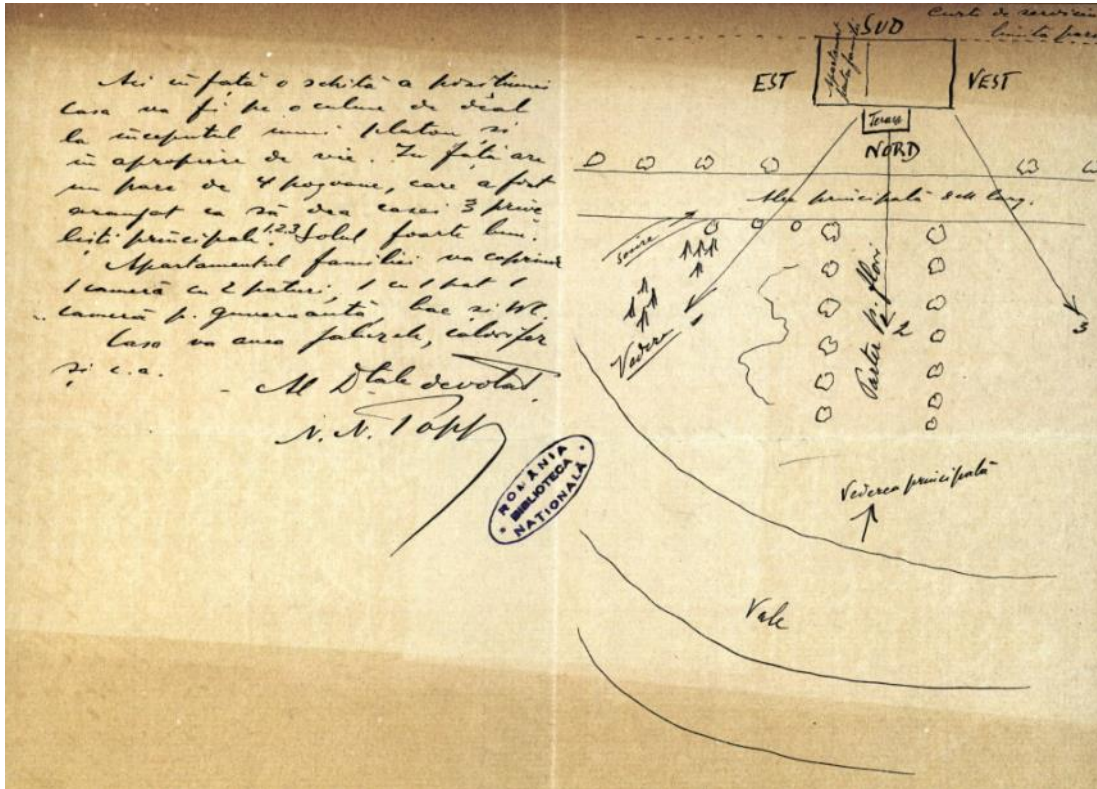 Aci în față o schită a pozitiunei
casa va fi pe o culme de deal
la inceputul unui platou si
in apropiere de vie. In față are
un parc de 4 pogoane, care a fost
aranjat ca să dea casei 3 prive
listi principale 1.2.3. Solul foarte bun.
Apartamentul familiei va coprinde
1 cameră cu 2 paturi, 1 cu 1 pat 1
cameră p. guvernantă, bae si WC.
Casa va avea calorifer
și c.a.
Al Dtale devotat.
N. N. Popp
ROMÂNIA
BIBLIOTECA
NATIONALĂ
Curte de serviciu
limita parc
SUD
EST
VEST
Terasa
NORD
Alea principală
sosire
Vedere
Parter p. flori
2
3
Vederea principală
Vale